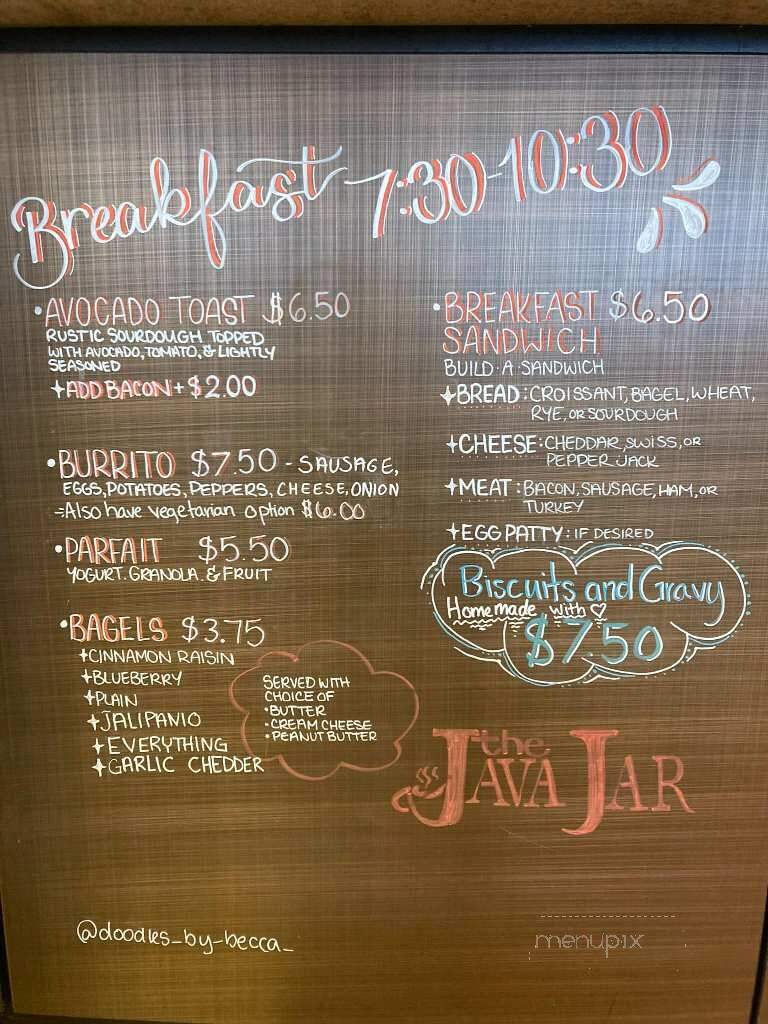 Breakfast 7:30-10:30
•AVOCADO TOAST $6.50
RUSTIC SOURDOUGH TOPPED
WITH AVOCADO, TOMATO, & LIGHTLY
SEASONED
+ADD BACON + $2.00
•BURRITO $7.50 - SAUSAGE,
EGGS, POTATOES, PEPPERS, CHEESE, ONION
-Also have vegetarian option $6.00
•PARFAIT $5.50
YOGURT. GRANOLA. & FRUIT
•BAGELS $3.75
+CINNAMON RAISIN
+BLUEBERRY
+PLAIN
+JALIPANIO
+EVERYTHING
+GARLIC CHEDDER
SERVED WITH
CHOICE OF
•BUTTER
•CREAM CHEESE
•PEANUT BUTTER
•BREAKFAST $6.50
SANDWICH
BUILD·A·SANDWICH
+BREAD: CROISSANT, BAGEL, WHEAT,
RYE, OR SOURDOUGH
+CHEESE: CHEDDAR, SWISS, OR
PEPPER JACK
+MEAT: BACON, SAUSAGE, HAM, OR
TURKEY
+EGG PATTY: IF DESIRED
Biscuits and Gravy
Homemade with ♡
$7.50
the
JAVA JAR
@doodles_by_becca_
menupix